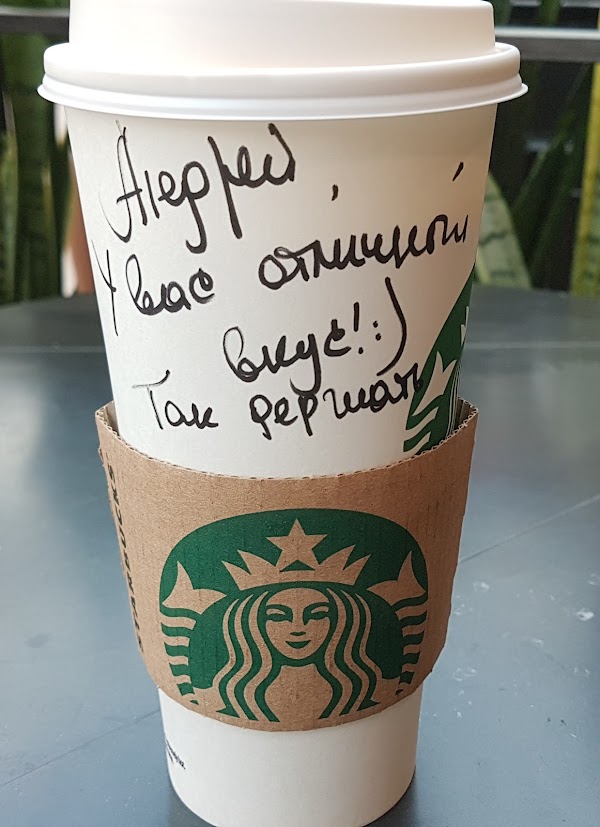 Андрей,
У вас отличный
вкус!:)
Так держать
STARBUCKS